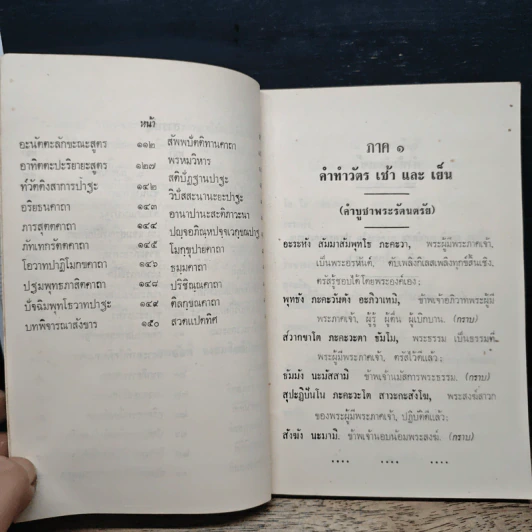 หน้า
อะนัตตะลักขะณะสูตร ๑๑๒
อาทิตตะปะริยายะสูตร ๑๒๗
ท๎วัตติงสาการปาฐะ ๑๔๒
อริยธนคาถา ๑๔๓
ภารสุตตคาถา ๑๔๔
ภัทเทกรัตตคาถา ๑๔๕
โอวาทปาฏิโมกขคาถา ๑๔๖
ปฐมพุทธภาสิตคาถา ๑๔๘
ปัจฉิมพุทโธวาทปาฐะ ๑๔๙
บทพิจารณาสังขาร ๑๕๐
สัพพปัตติทานคาถา
พรหมวิหาร
สติปัฏฐานปาฐะ
วิปัสสะนานะยะปาฐะ
อานาปานะสะติภาวะนา
ปญฺจอภิณฺหปจฺจเวกฺขณปาฐ
โมกฺขุปายคาถา
ธมฺมคาถา
ปริขิณฺณคาถา
ติลกฺขณคาถา
สวดแปดทิศ
ภาค ๑
คำทำวัตร เช้า และ เย็น
(คำบูชาพระรัตนตรัย)
อะระหัง สัมมาสัมพุทโธ ภะคะวา, พระผู้มีพระภาคเจ้า,
เป็นพระอรหันต์, ดับเพลิงกิเลสเพลิงทุกข์สิ้นเชิง,
ตรัสรู้ชอบได้โดยพระองค์เอง;
พุทธัง ภะคะวันตัง อะภิวาเทมิ, ข้าพเจ้าอภิวาทพระผู้มี
พระภาคเจ้า, ผู้รู้ ผู้ตื่น ผู้เบิกบาน. (กราบ)
ส๎วากขาโต ภะคะวะตา ธัมโม, พระธรรม เป็นธรรมที่
พระผู้มีพระภาคเจ้า, ตรัสไว้ดีแล้ว;
ธัมมัง นะมัสสามิ ข้าพเจ้านมัสการพระธรรม. (กราบ)
สุปะฏิปันโน ภะคะวะโต สาวะกะสังโฆ, พระสงฆ์สาวก
ของพระผู้มีพระภาคเจ้า, ปฏิบัติดีแล้ว;
สังฆัง นะมามิ. ข้าพเจ้านอบน้อมพระสงฆ์. (กราบ)
.... .... ....